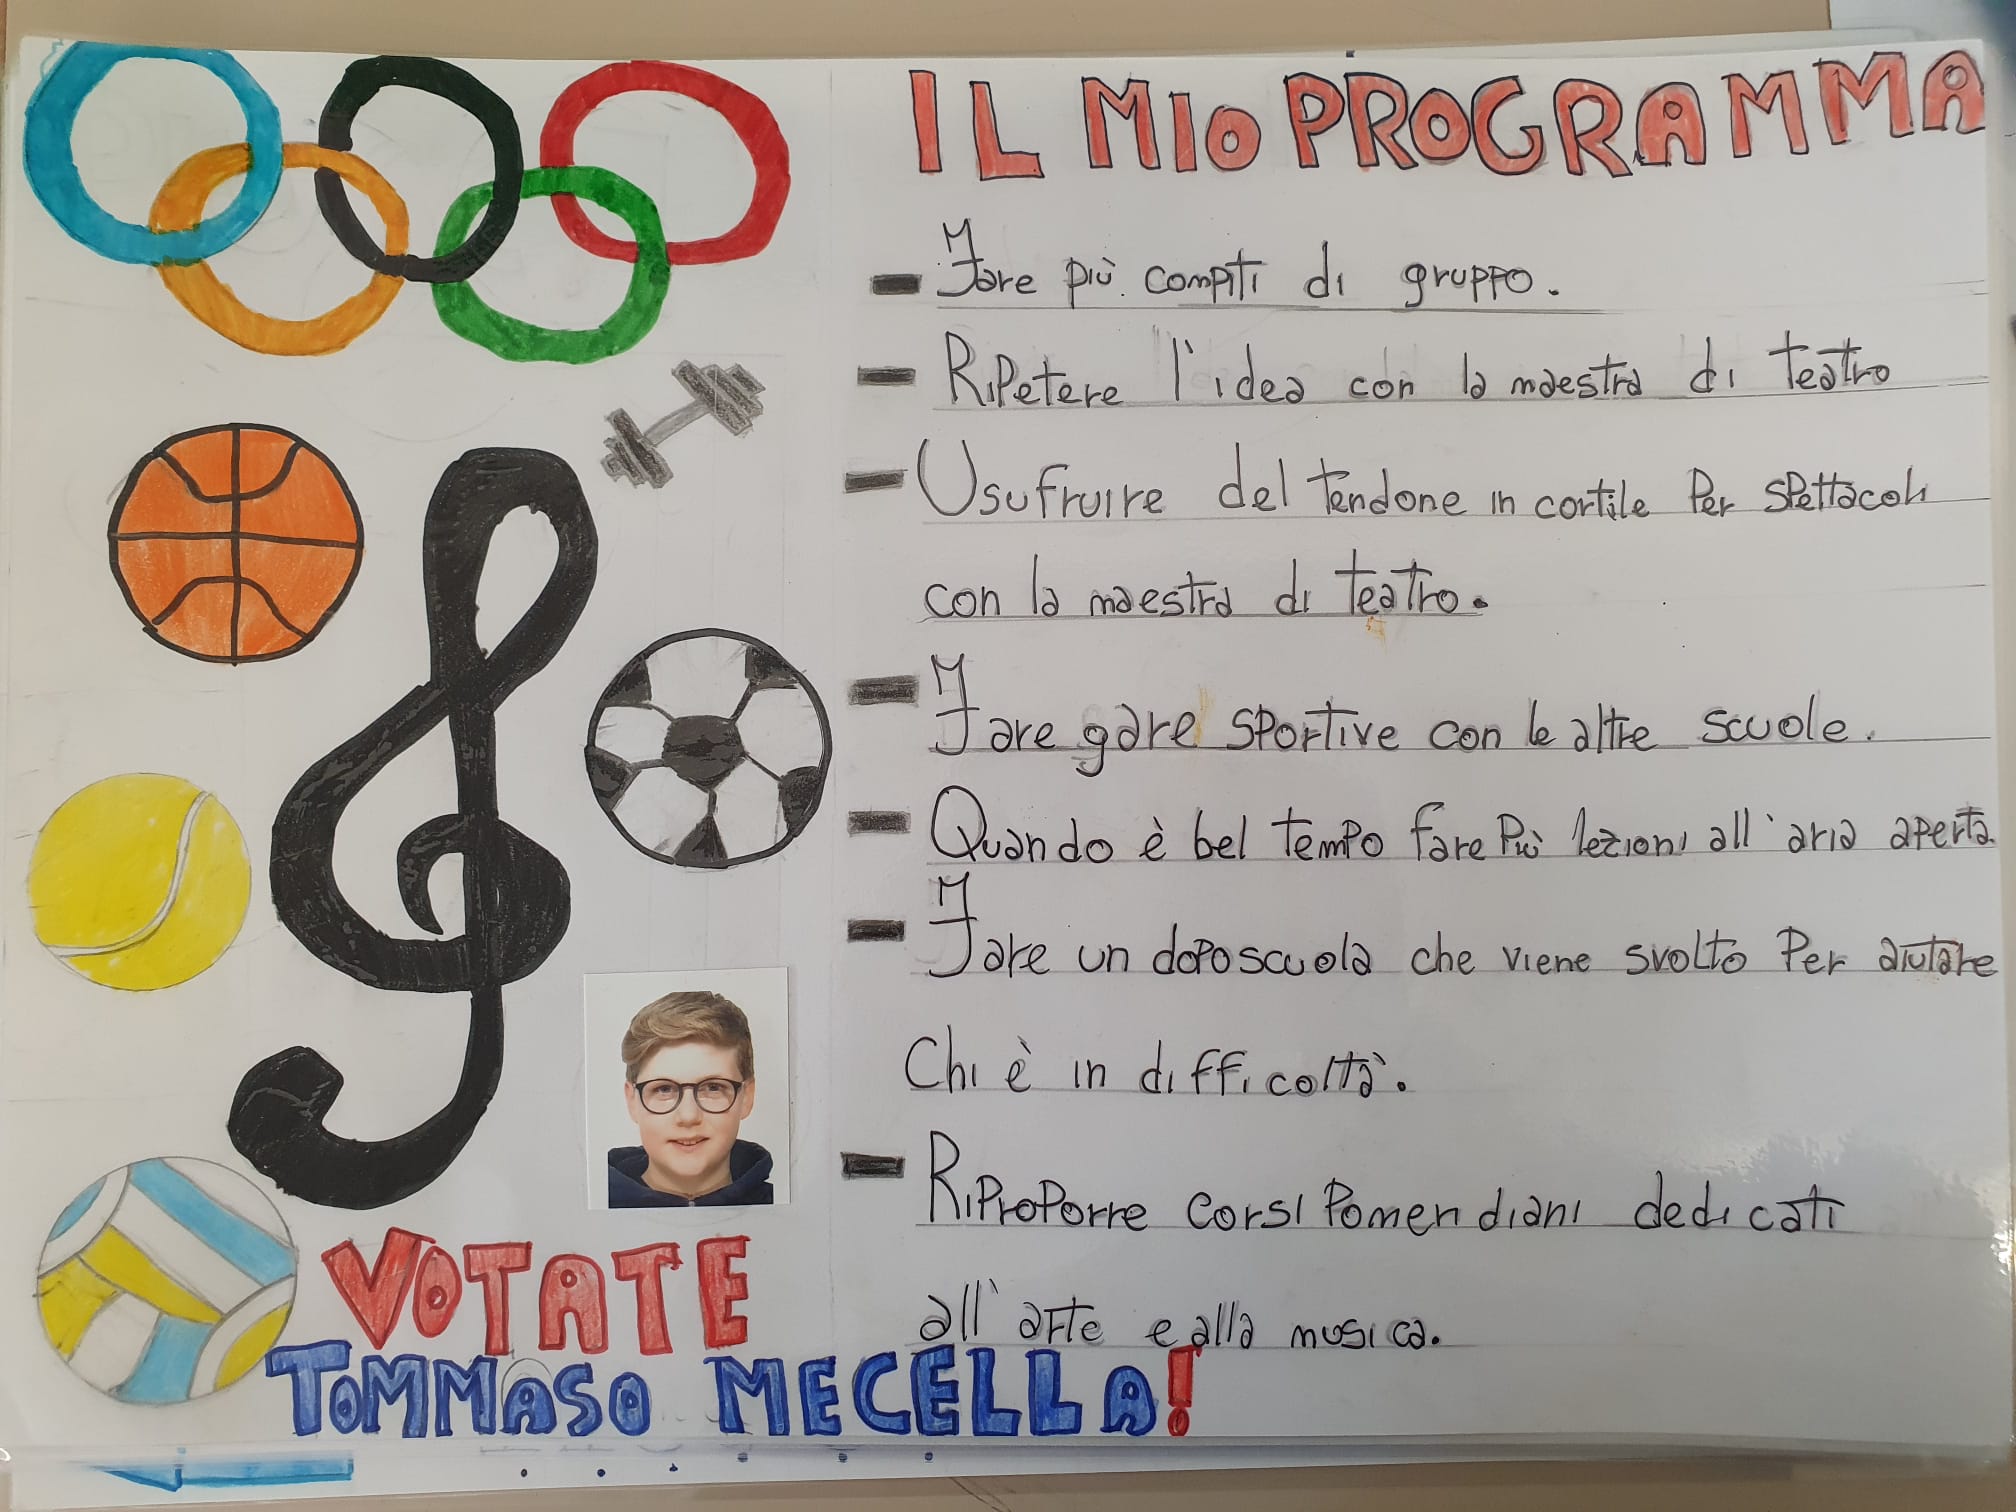 IL MIO PROGRAMMA
- Fare più compiti di gruppo.
- Ripetere l'idea con la maestra di teatro
- Usufruire del tendone in cortile per spettacoli
con la maestra di teatro.
- Fare gare sportive con le altre scuole.
- Quando è bel tempo fare più lezioni all'aria aperta.
- Fare un doposcuola che viene svolto per aiutare
Chi è in difficoltà.
- Riproporre corsi pomeridiani dedicati
all'arte e alla musica.
VOTATE
TOMMASO MECELLA!